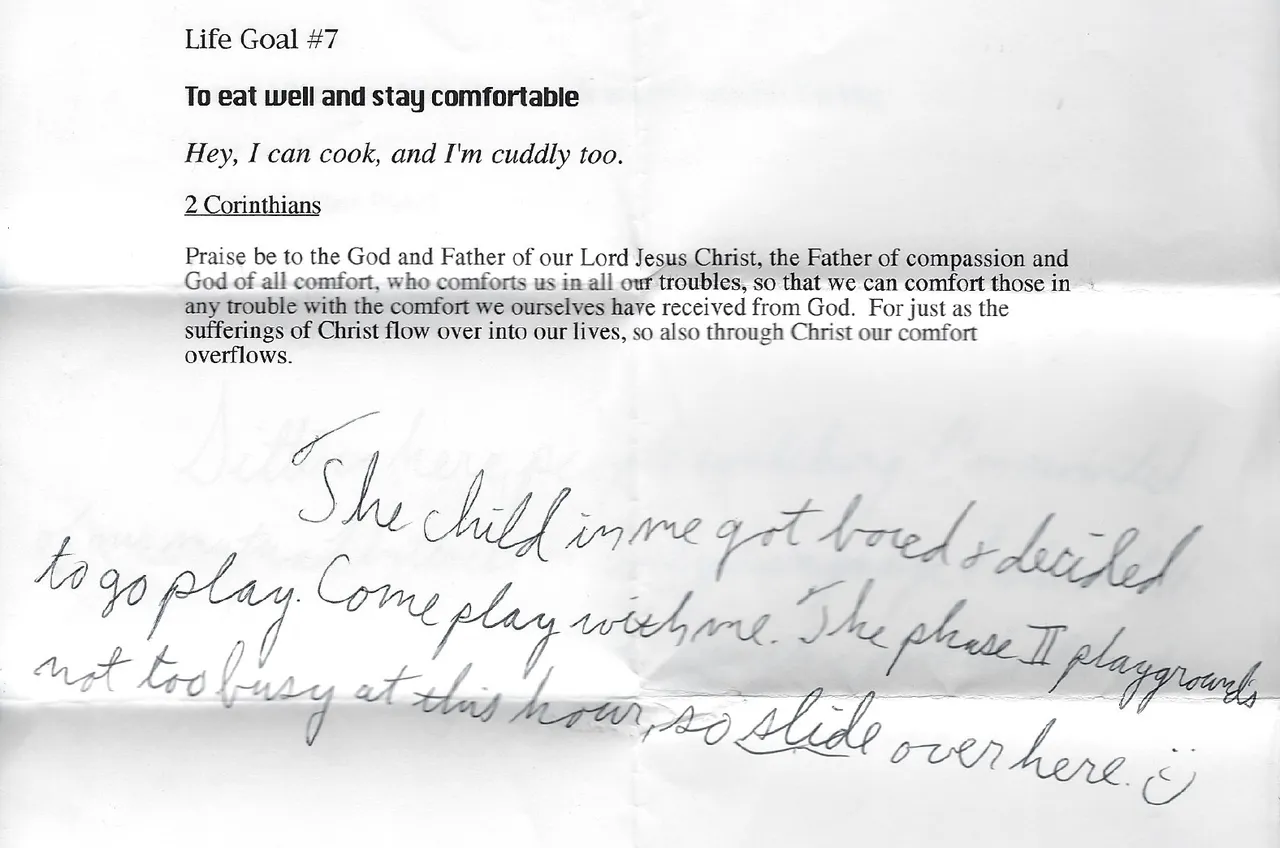 Life Goal #7
To eat well and stay comfortable
Hey, I can cook, and I'm cuddly too.
2 Corinthians
Praise be to the God and Father of our Lord Jesus Christ, the Father of compassion and
God of all comfort, who comforts us in all our troubles, so that we can comfort those in
any trouble with the comfort we ourselves have received from God.  For just as the
sufferings of Christ flow over into our lives, so also through Christ our comfort
overflows.
The child in me got bored & decided
to go play. Come play with me. The phase II playground's
not too busy at this hour, so slide over here. :)